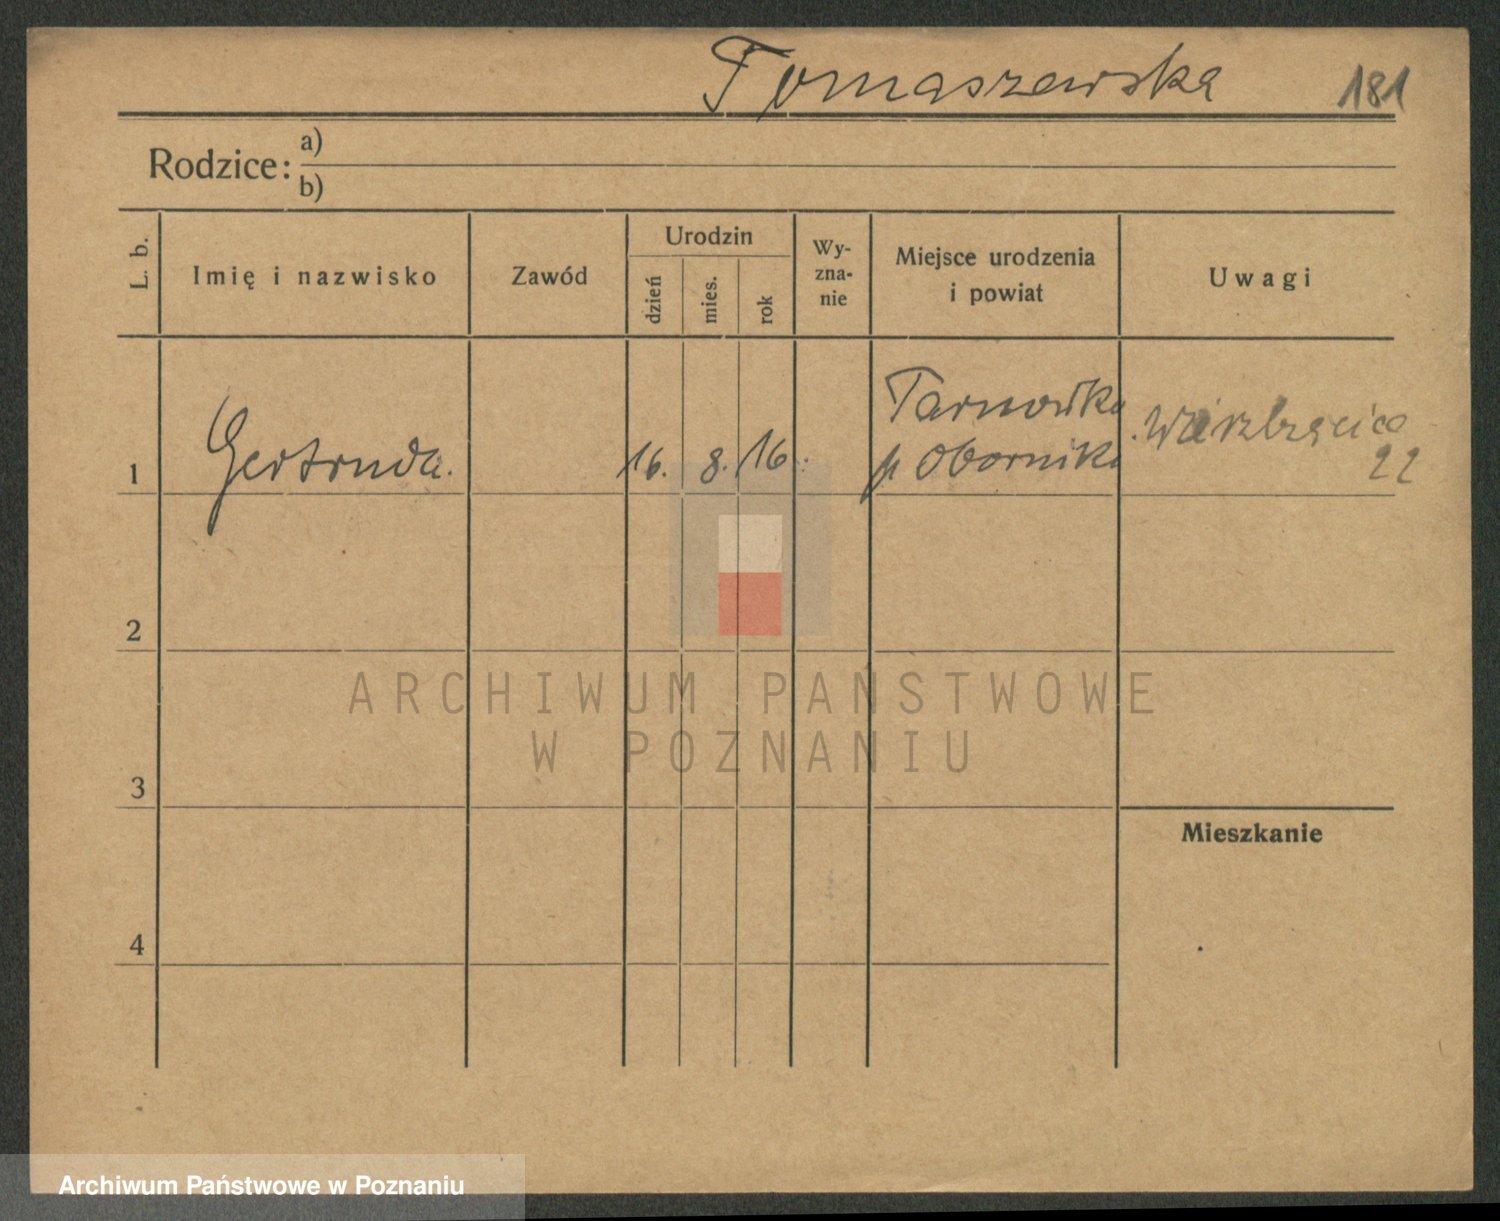 Tomaszewska 181
Rodzice: a)
b)
L. b.
Imię i nazwisko
Zawód
Urodzin
dzień
mies.
rok
Wy-
zna-
nie
Miejsce urodzenia
i powiat
Uwagi
1
Gertruda.
16. 8. 16.
Tarnówka
p Obornika
Wierzbięcice
22
2
3
4
Mieszkanie
ARCHIWUM PAŃSTWOWE
W POZNANIU
Archiwum Państwowe w Poznaniu